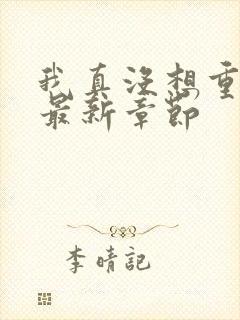 我真沒想重
最新章節
李晴記